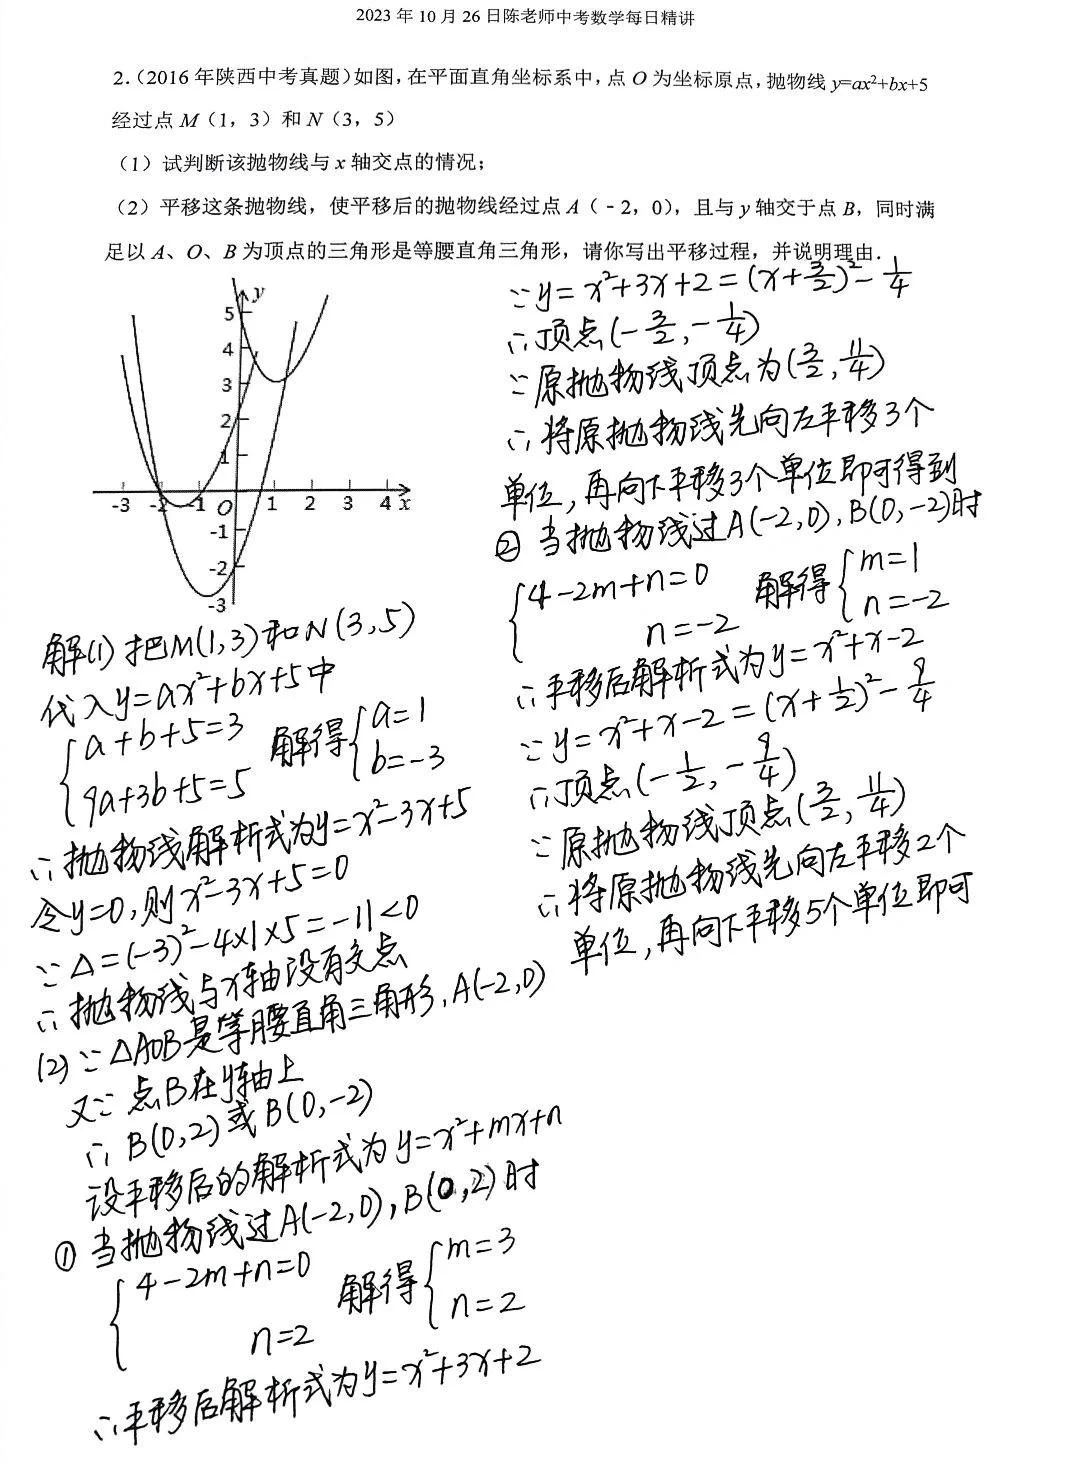 2023年10月26日陈老师中考数学每日精讲
2.(2016年陕西中考真题)如图,在平面直角坐标系中,点O为坐标原点,抛物线y=ax²+bx+5
经过点M(1,3)和N(3,5)
(1)试判断该抛物线与x轴交点的情况;
(2)平移这条抛物线,使平移后的抛物线经过点A(-2,0),且与y轴交于点B,同时满
足以A、O、B为顶点的三角形是等腰直角三角形,请你写出平移过程,并说明理由.
y
5
4
3
2
1
-3 -2 -1 O 1 2 3 4 x
-1
-2
-3
解(1)把M(1,3)和N(3,5)
代入y=ax²+bx+5中
{a+b+5=3
9a+3b+5=5
解得{a=1
b=-3
∴抛物线解析式为y=x²-3x+5
令y=0,则x²-3x+5=0
∵Δ=(-3)²-4×1×5=-11<0
∴抛物线与x轴没有交点
(2)∵△AOB是等腰直角三角形,A(-2,0)
又∵点B在y轴上
∴B(0,2)或B(0,-2)
设平移后的解析式为y=x²+mx+n
①当抛物线过A(-2,0),B(0,2)时
{4-2m+n=0
n=2
解得{m=3
n=2
∴平移后解析式为y=x²+3x+2
∵y=x²+3x+2=(x+3/2)²-1/4
∴顶点(-3/2,-1/4)
∵原抛物线顶点为(3/2,11/4)
∴将原抛物线先向左平移3个
单位,再向下平移3个单位即可得到
②当抛物线过A(-2,0),B(0,-2)时
{4-2m+n=0
n=-2
解得{m=1
n=-2
∴平移后解析式为y=x²+x-2
∵y=x²+x-2=(x+1/2)²-9/4
∴顶点(-1/2,-9/4)
∵原抛物线顶点(3/2,11/4)
∴将原抛物线先向左平移2个
单位,再向下平移5个单位即可